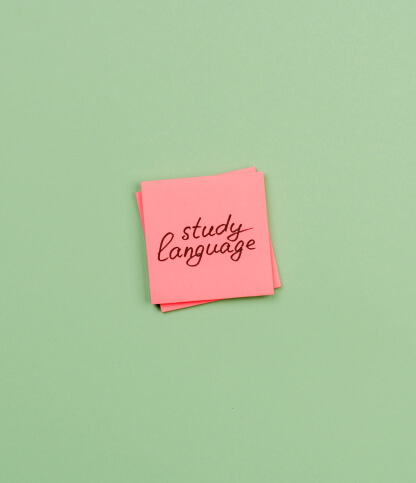 study
language